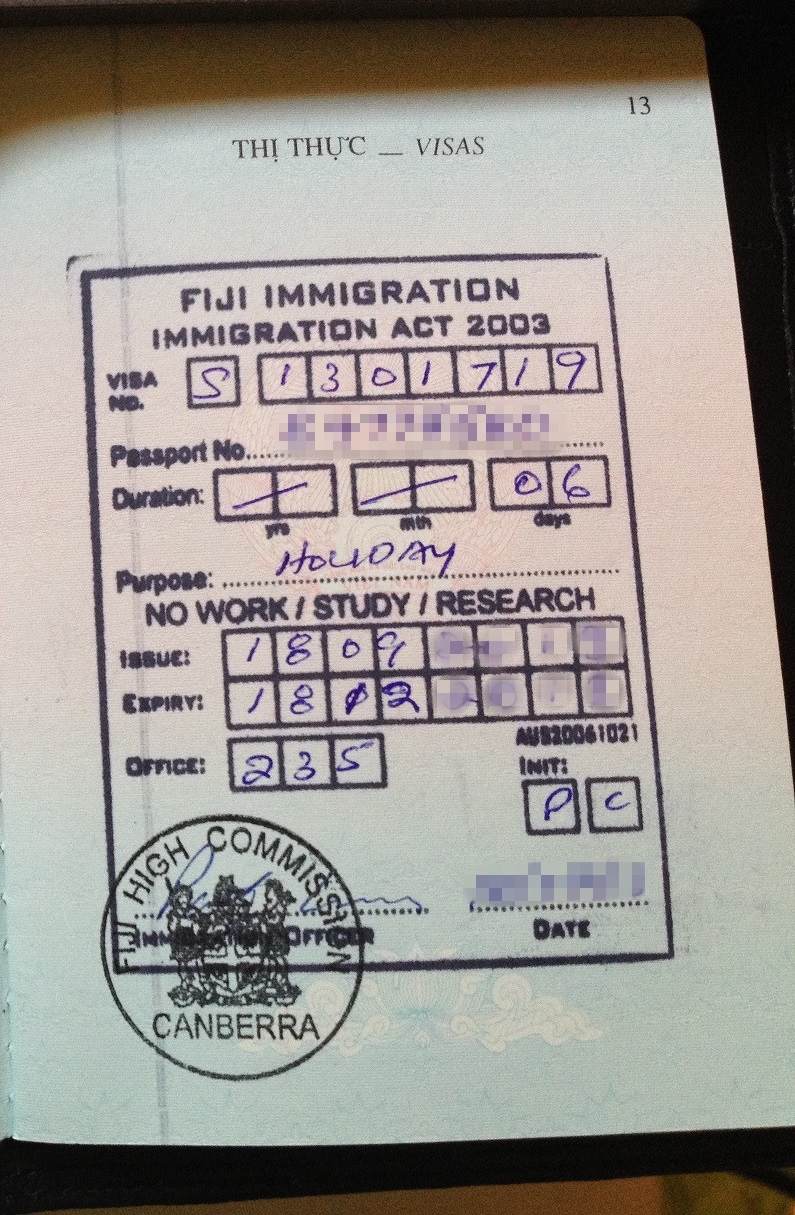 13
THỊ THỰC — VISAS
FIJI IMMIGRATION
IMMIGRATION ACT 2003
VISA NO. S 1301719
Passport No.
Duration: yrs mth 06 days
Purpose: HOLIDAY
NO WORK / STUDY / RESEARCH
ISSUE: 1809
EXPIRY: 1812
AUS20061021
OFFICE: 235
INIT:
PC
IMMIGRATION OFFICER
DATE
FIJI HIGH COMMISSION
CANBERRA